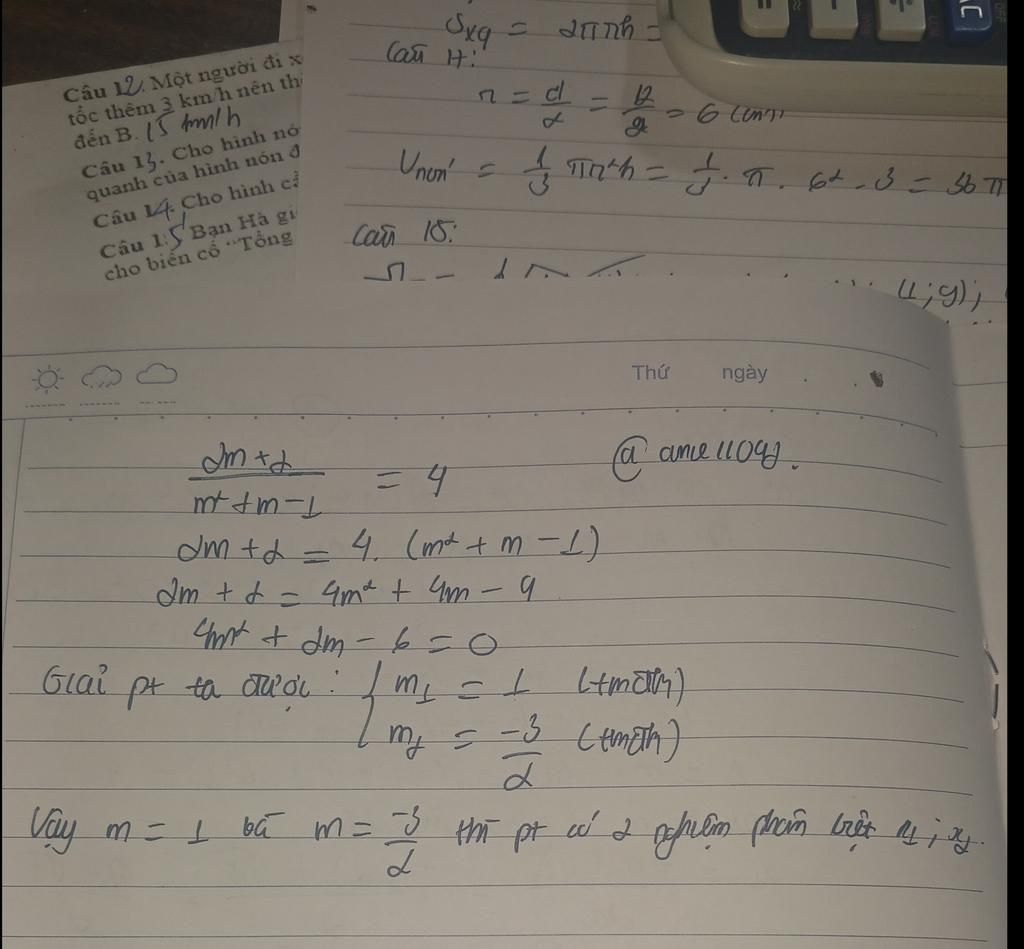 Câu 12. Một người đi x
tốc thêm 3 km/h nên th
đến B. 15 km/h
Câu 13. Cho hình nó
quanh của hình nón đ
Câu 14. Cho hình cầ
Câu 15 Bạn Hà gi
cho biến cố "Tổng
Sxq = 2πrh =
Câu 14:
r = d/2 = 12/2 = 6 (cm)
Vnón = 1/3 πr²h = 1/3 . π . 6² . 3 = 36 π
Câu 15:
(1; 4);
Thứ ngày
(2m + 2)/(m² + m - 1) = 4
2m + 2 = 4. (m² + m - 1)
2m + 2 = 4m² + 4m - 4
4m² + 2m - 6 = 0
Giải pt ta được: { m1 = 1 (tmđk)
m2 = -3/2 (tmđk)
Vậy m = 1 m = -3/2 thì pt có 2 nghiệm phân biệt x1; x2.